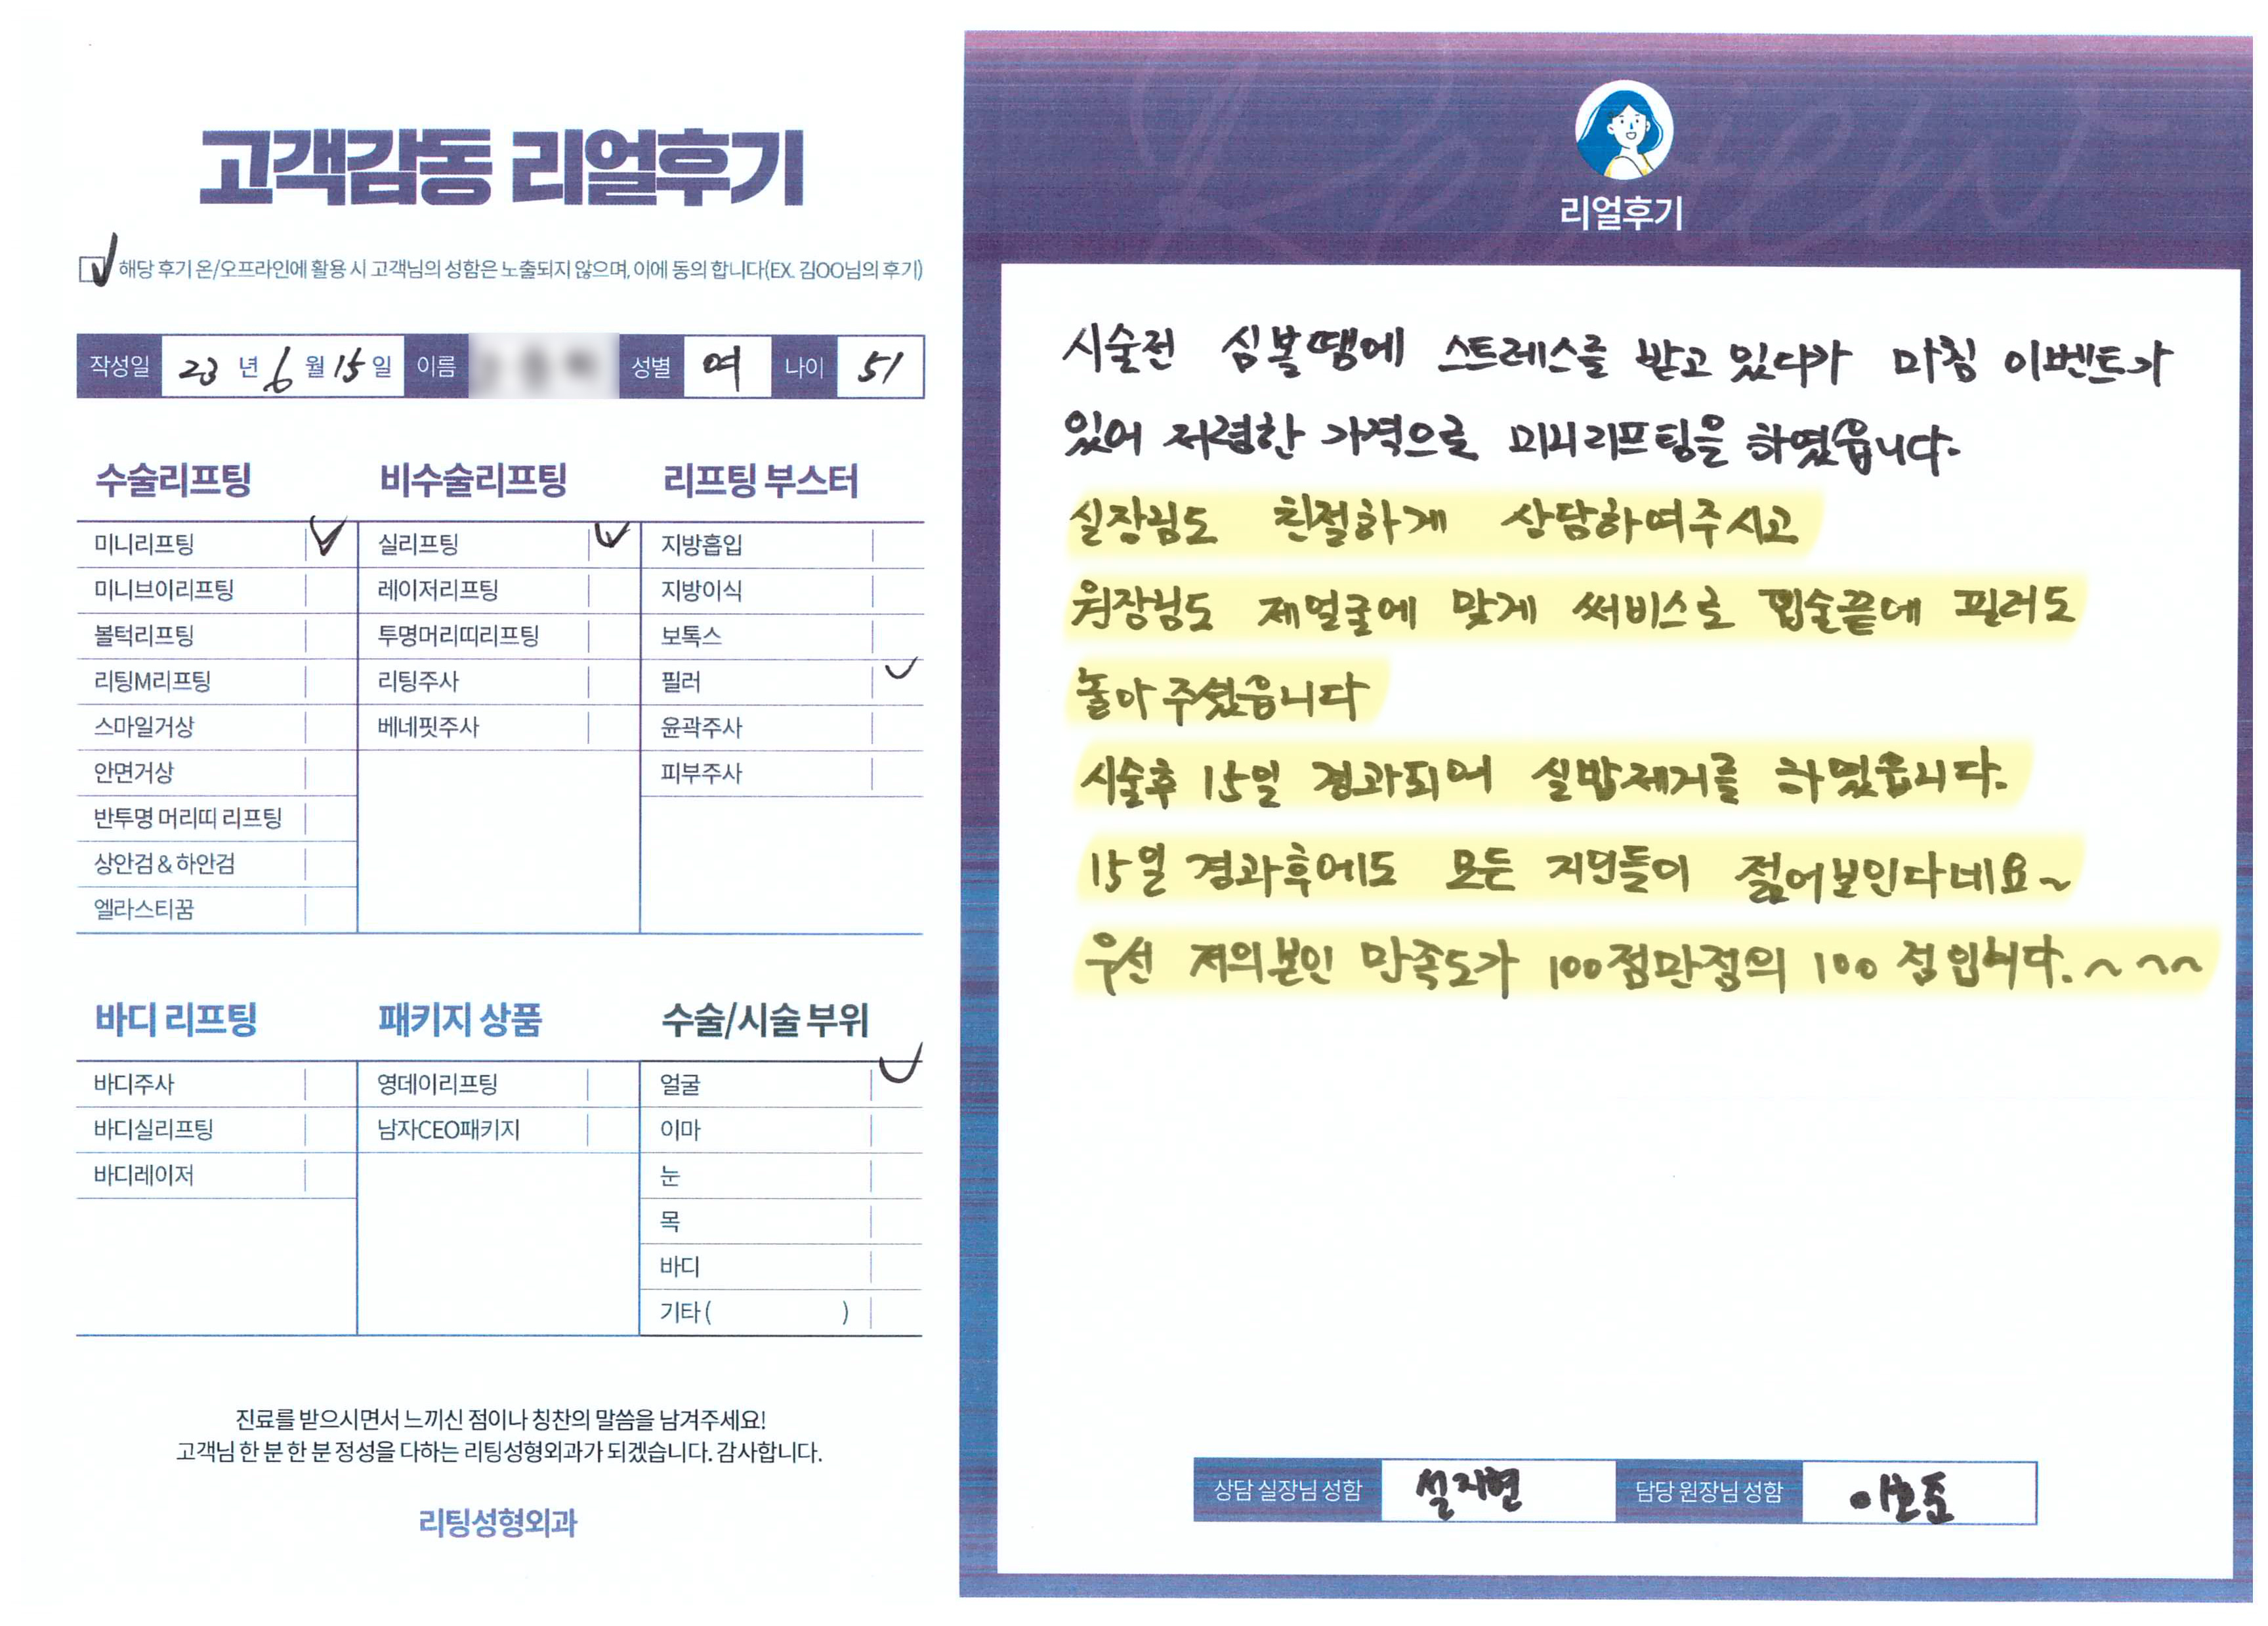 고객감동 리얼후기
해당 후기 온/오프라인에 활용 시 고객님의 성함은 노출되지 않으며, 이에 동의 합니다(EX. 김OO님의 후기)
작성일 23 년 6 월 15 일 이름 성별 여 나이 51
수술리프팅
미니리프팅
미니브이리프팅
볼턱리프팅
리팅M리프팅
스마일거상
안면거상
반투명 머리띠 리프팅
상안검 & 하안검
엘라스티꿈
비수술리프팅
실리프팅
레이저리프팅
투명머리띠리프팅
리팅주사
베네핏주사
리프팅 부스터
지방흡입
지방이식
보톡스
필러
윤곽주사
피부주사
바디 리프팅
바디주사
바디실리프팅
바디레이저
패키지 상품
영데이리프팅
남자CEO패키지
수술/시술 부위
얼굴
이마
눈
목
바디
기타 ( )
진료를 받으시면서 느끼신 점이나 칭찬의 말씀을 남겨주세요!
고객님 한 분 한 분 정성을 다하는 리팅성형외과가 되겠습니다. 감사합니다.
리팅성형외과
Review
리얼후기
시술전 심볼땡에 스트레스를 받고 있다가 마침 이벤트가
있어 저렴한 가격으로 미니리프팅을 하였읍니다.
실장님도 친절하게 상담하여주시고
원장님도 제얼굴에 맞게 써비스로 입술끝에 필러도
놓아 주셨읍니다
시술후 15일 경과되어 실밥제거를 하였읍니다.
15일 경과후에도 모든 지인들이 젊어보인다네요~
우선 저의본인 만족도가 100점만점의 100 점입니다.~~~
상담 실장님 성함 설지현 담당 원장님 성함 이호준